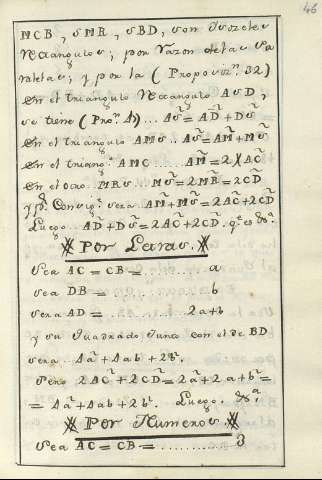 46
MCB, SMR, SBD, son Isozeles
Rectangulos; por razon de las Pa
ralelas; y por la (Proposiz.n 32)
En el triangulo Rectangulo ASD,
se tiene (Pro.n A) .. AS² = AD² + DS²
En el triangulo AMS .. AS² = AM² + MS²
En el triang.o AMC ... AM² = 2 X AC²
En el otro .. MRS .. MS² = 2MR² = 2CD²
y p.r Consig.te sera AM² + MS² = 2AC² + 2CD²
Luego .. AD² + DS² = 2AC² + 2CD². q.e es &.a
Por Letras.
Sea AC = CB = ......... a
Sea DB = ............ b
Sera AD = ......... 2a+b
y su Quadrado Junto con el de BD
sera .. 4a² + 4ab + 2b².
Sera 2AC² + 2CD² = 2a² + 2 a+b² =
= 4a² + 4ab + 2b². Luego. &.a
Por Numeros.
Sea AC = CB = .......... 3